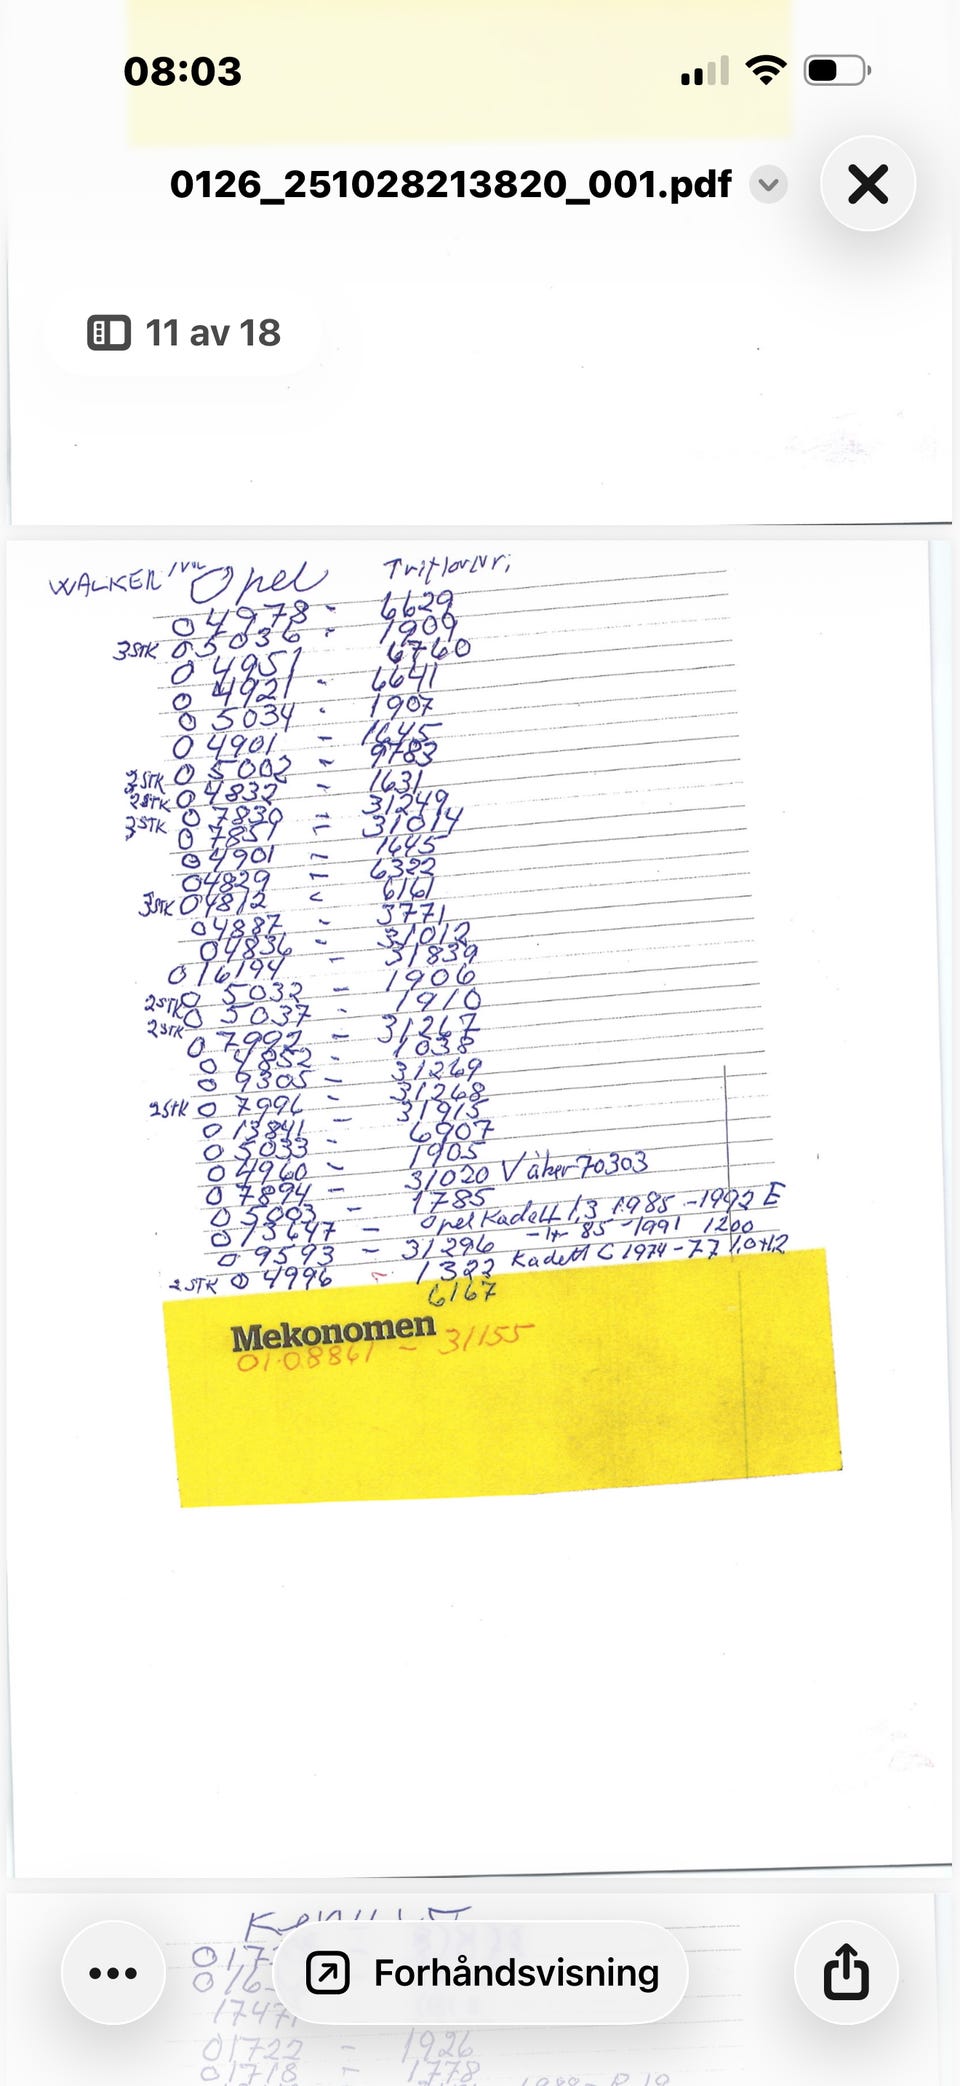 08:03
0126_251028213820_001.pdf
11 av 18
WALKER Opel
04978 - 6629
3STK 05036 - 1909
04951 6760
04921 - 6641
05034 - 1907
04901 - 1645
2STK 05002 - 9783
2STK 04832 - 1631
3STK 07839 = 31249
07851 = 31014
04901 - 1645
04829 - 6322
3STK 04812 - 6161
04887 - 3771
04836 - 31012
016194 - 31839
2STK 05032 - 1906
2STK 05037 - 1910
07992 - 31267
04852 - 1038
09305 - 31269
2STK 07996 - 31268
013841 - 31915
05033 - 6907
04960 - 1905
07894 - 31020 Våker 70303
05003 - 1785
013647 - Opel Kadett 1,3 1985-1992 E
09593 - 31296 -1+ 85-1991 1200
2STK 04996 - 1322 Kadett C 1974-77 1,0+1,2
6167
Mekonomen
01.08861 - 31155
017
016
1747
Forhåndsvisning
01722 - 1926
01718 - 1778